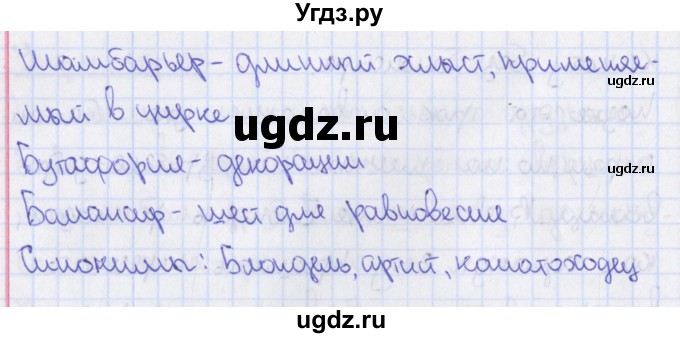 Угдз.ру
Шамбарьер - длинный хлыст, применяе-
ugdz.ru
мый в цирке
ugdz.ru
ugdz.ru
Бутафория - декорации
Балансир - шест для равновесия
ugdz.ru
Синонимы: Блондель, артист, канатоходец
ugdz.ru